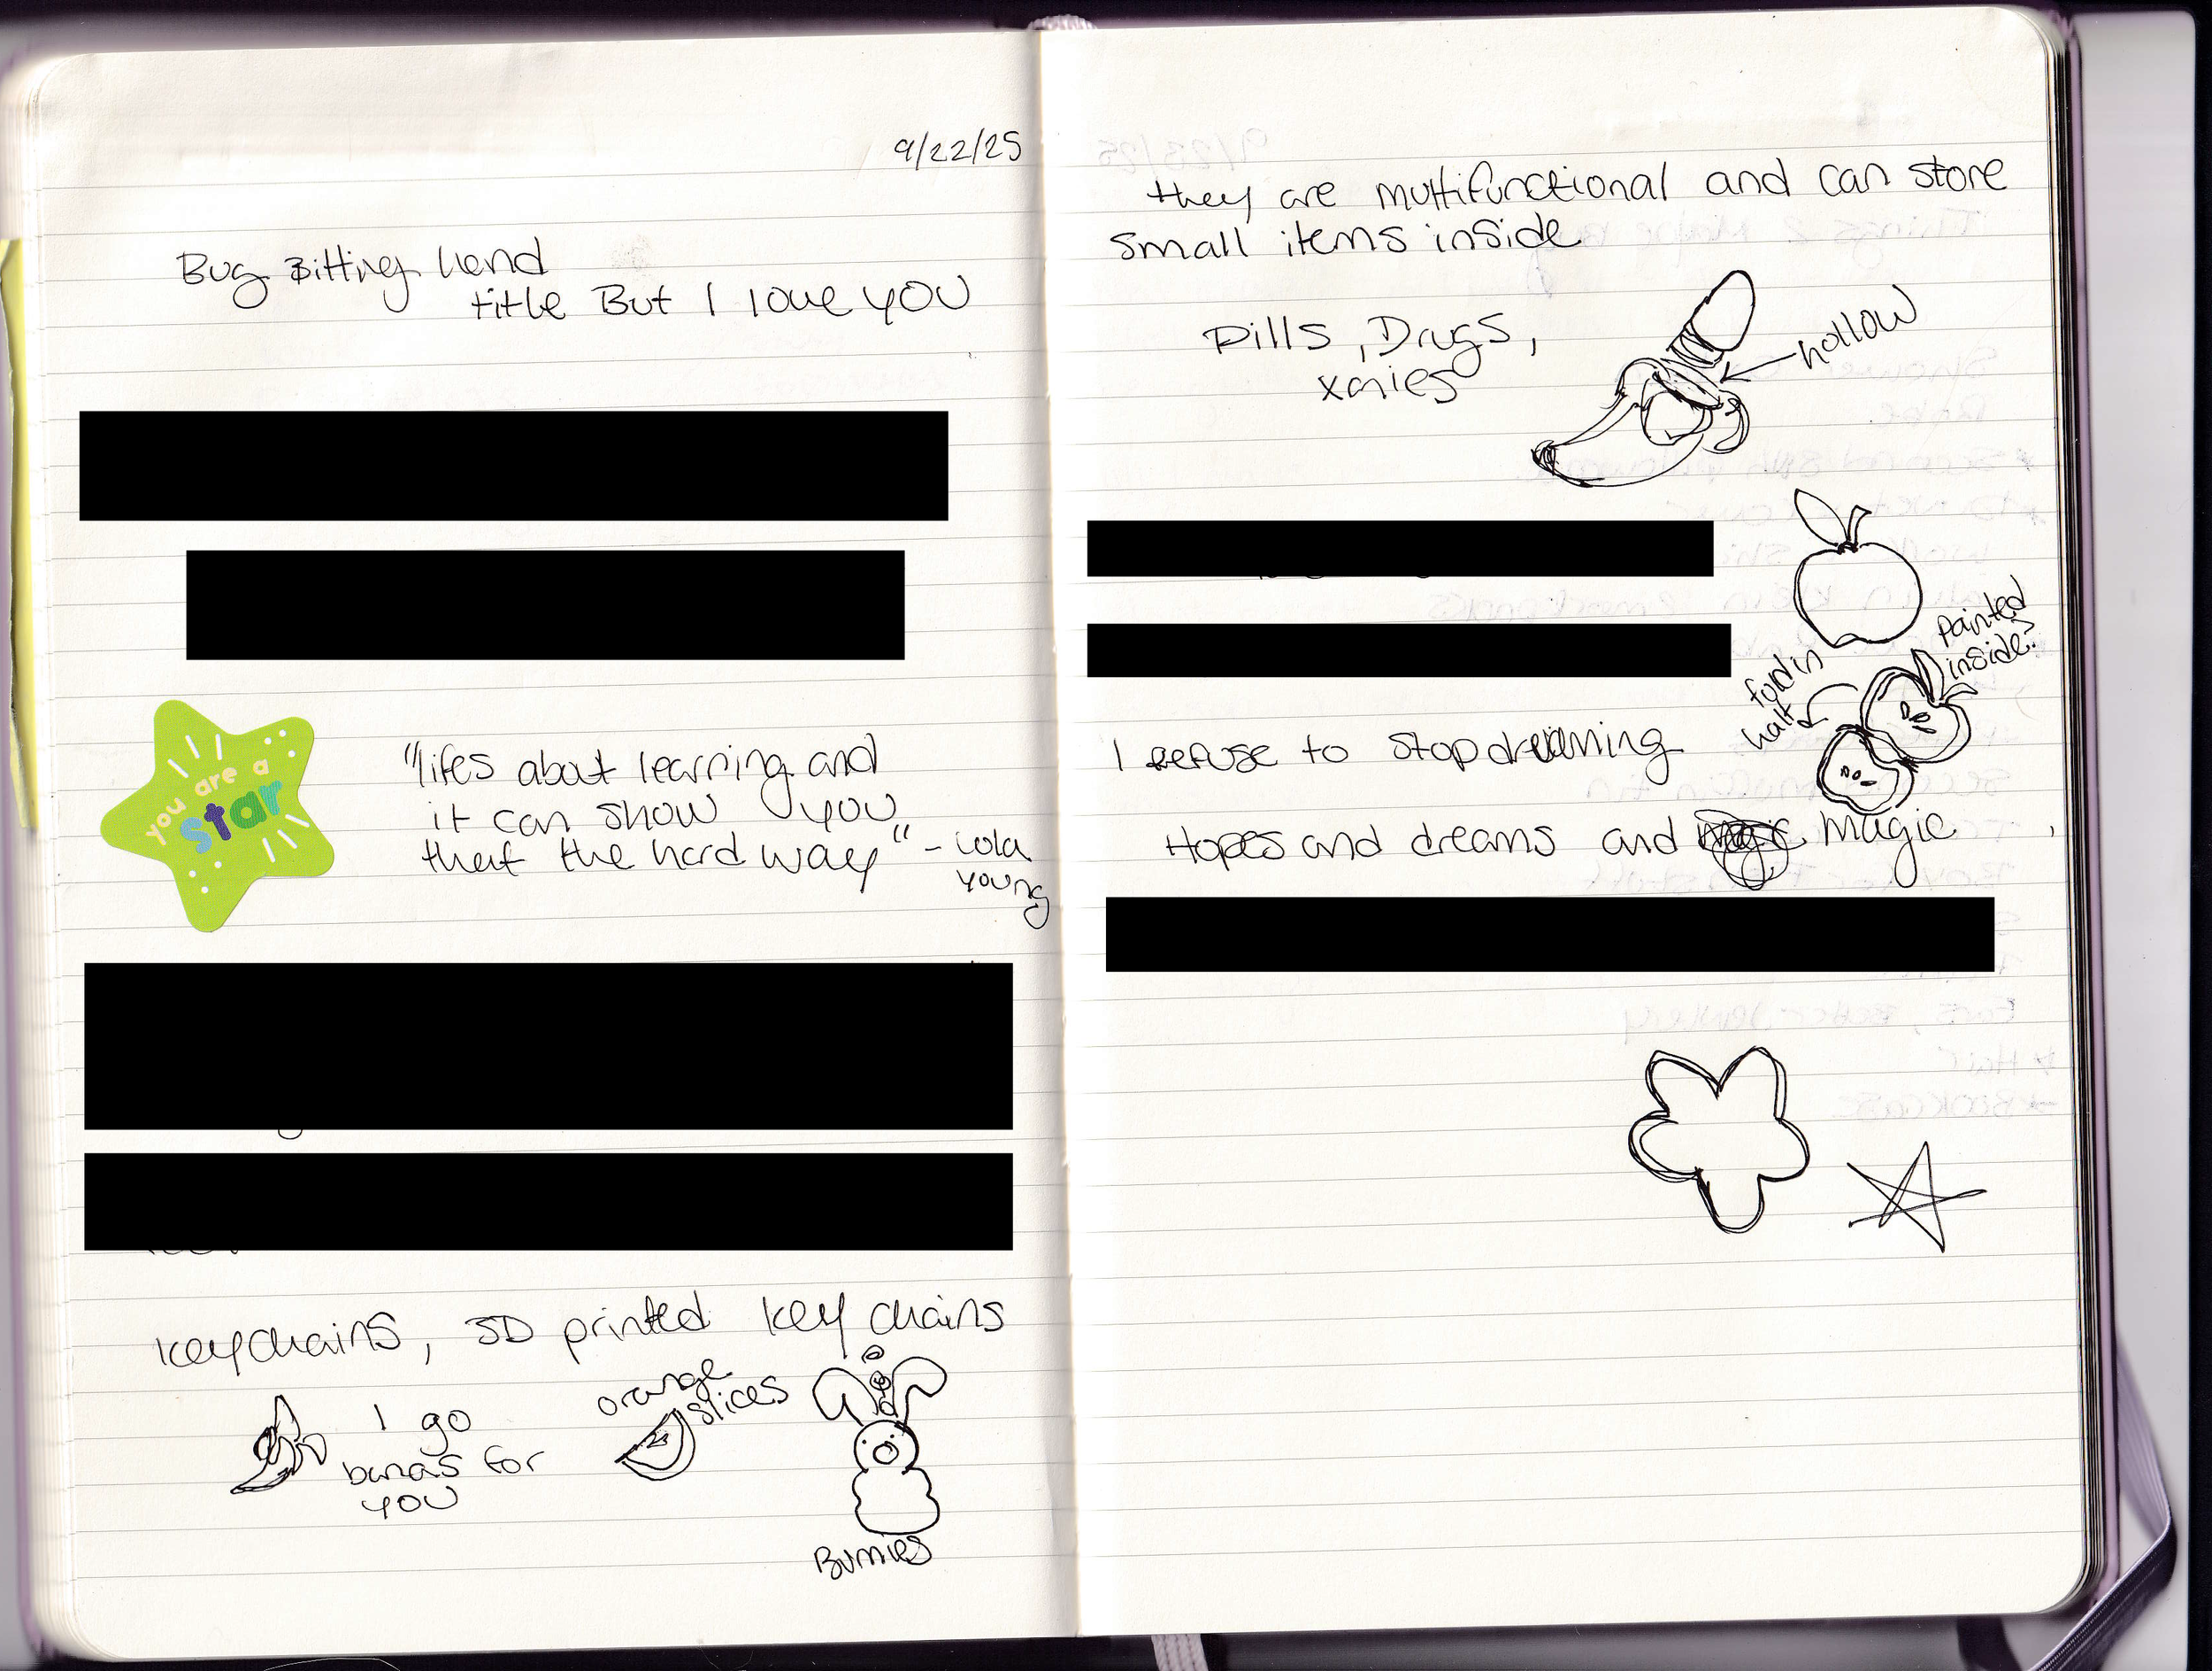 9/22/25
Bug Bitting hand
title But I love YOU
you are a
star
"lifes about learning and
it can show you
that the hard way" - Lola
Young
Keychains, 3D printed key chains
I go
bunas for
YOU
orange
slices
Bunnies
they are multifunctional and can store
small items inside
Pills, Drugs,
xanies
hollow
painted
inside?
fold in
half
I refuse to stop dreaming
Hopes and dreams and magic